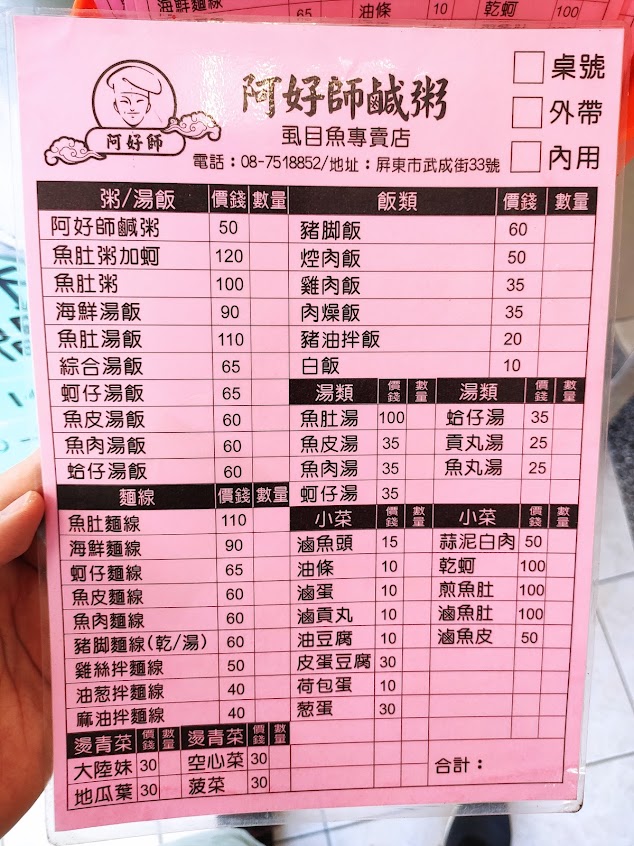 海鮮麵線 65 油條 10 乾蚵 100
阿好師
阿好師鹹粥
虱目魚專賣店
電話：08-7518852/地址：屏東市武成街33號
桌號
外帶
內用
粥/湯飯 價錢 數量
阿好師鹹粥 50
魚肚粥加蚵 120
魚肚粥 100
海鮮湯飯 90
魚肚湯飯 110
綜合湯飯 65
蚵仔湯飯 65
魚皮湯飯 60
魚肉湯飯 60
蛤仔湯飯 60
麵線 價錢 數量
魚肚麵線 110
海鮮麵線 90
蚵仔麵線 65
魚皮麵線 60
魚肉麵線 60
豬腳麵線(乾/湯) 60
雞絲拌麵線 50
油葱拌麵線 40
麻油拌麵線 40
燙青菜 價錢 數量 燙青菜 價錢 數量
大陸妹 30 空心菜 30
地瓜葉 30 菠菜 30
飯類 價錢 數量
豬腳飯 60
焢肉飯 50
雞肉飯 35
肉燥飯 35
豬油拌飯 20
白飯 10
湯類 價錢 數量 湯類 價錢 數量
魚肚湯 100 蛤仔湯 35
魚皮湯 35 貢丸湯 25
魚肉湯 35 魚丸湯 25
蚵仔湯 35
小菜 價錢 數量 小菜 價錢 數量
滷魚頭 15 蒜泥白肉 50
油條 10 乾蚵 100
滷蛋 10 煎魚肚 100
滷貢丸 10 滷魚肚 100
油豆腐 10 滷魚皮 50
皮蛋豆腐 30
荷包蛋 10
葱蛋 30
合計：